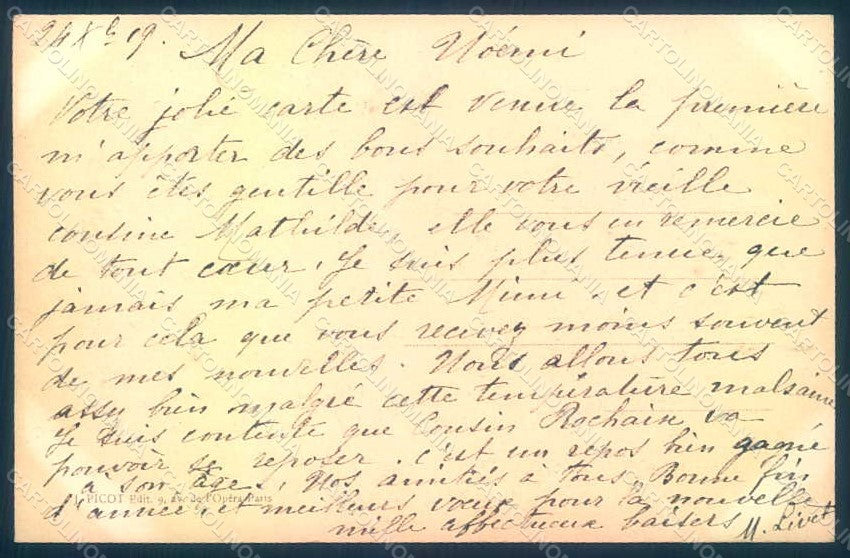 24 Xbre 19. Ma Chère Noémi
Votre jolie carte est venue la première
m'apporter des bons souhaits, comme
vous êtes gentille pour votre vieille
cousine Mathilde, elle vous en remercie
de tout cœur, Je suis plus tenue que
jamais ma petite Mimi. et c'est
pour cela que vous recevez moins souvent
de mes nouvelles. Nous allons tous
assy bien malgré cette température malsaine
Je suis contente que Cousin Rochaix va
pouvoir se reposer. c'est un repos bien gagné
à son âge, Nos amitiés à tous Bonne fin
J. PICOT Edit. 9, av. de l'Opéra Paris
d'année, et meilleurs vœux pour la nouvelle
mille affectueux baisers M. Livet
CARTOLINOMANIA